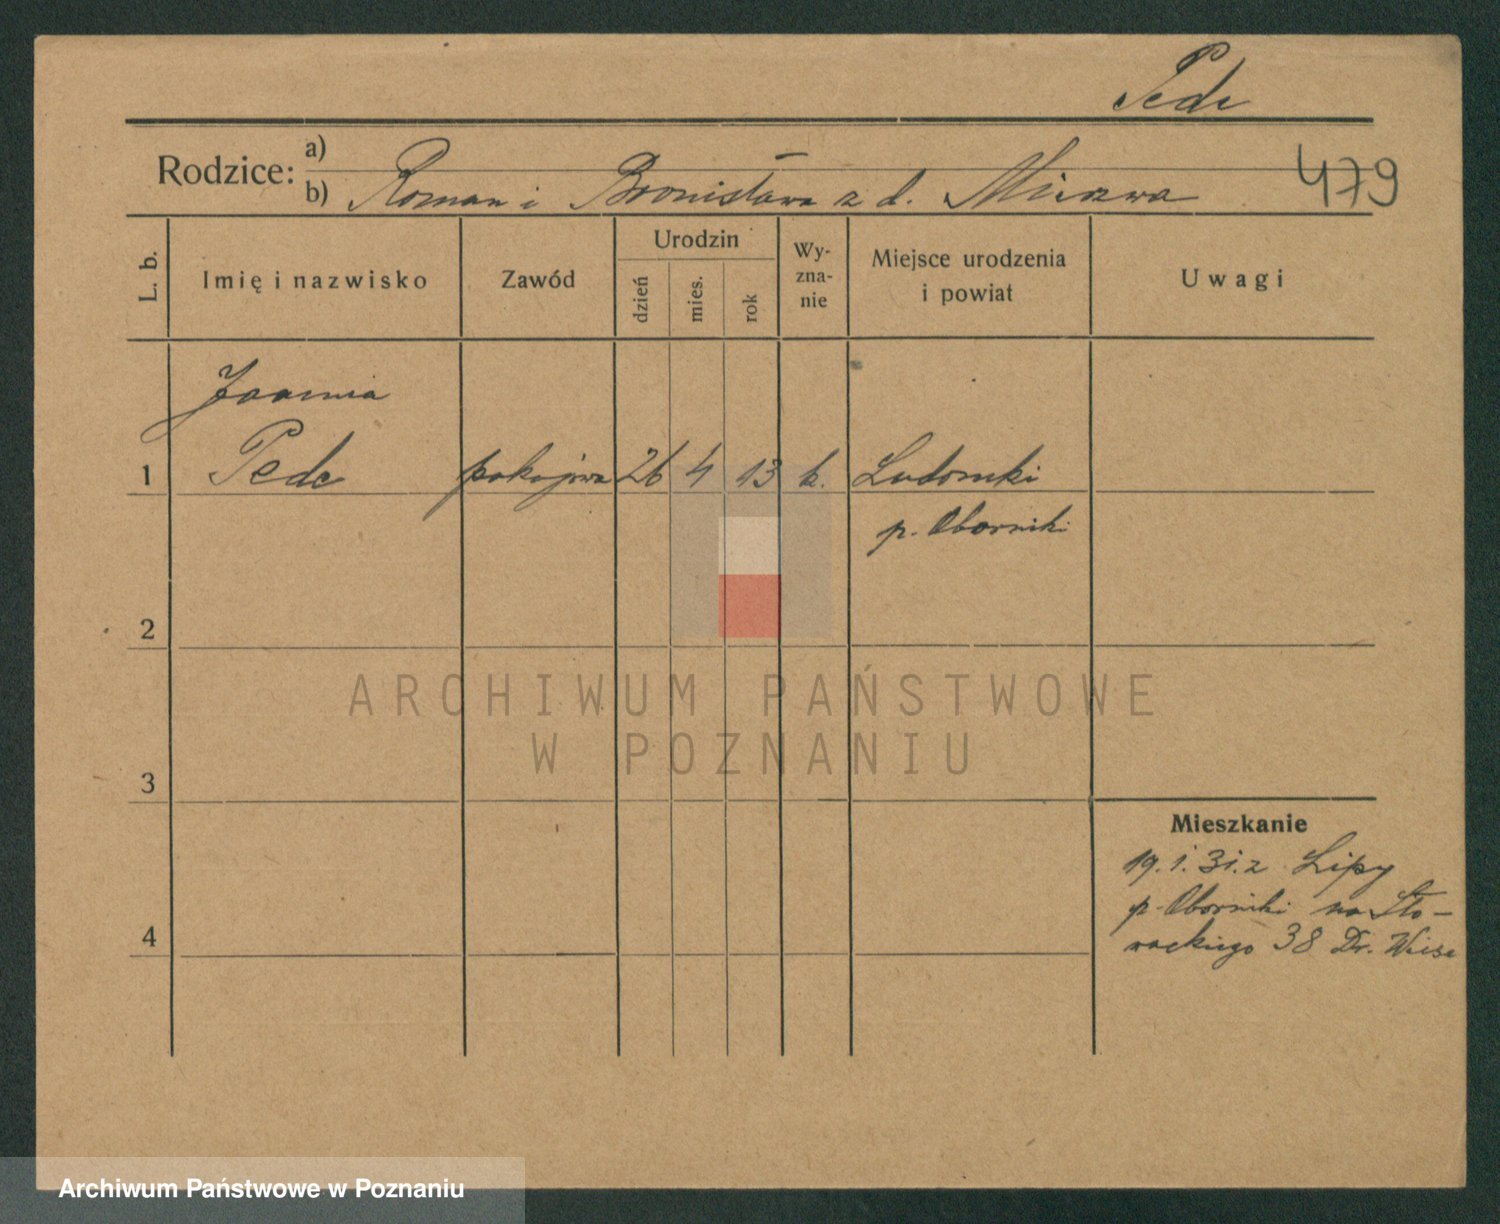 Pede
Rodzice: a)
b) Roman i Bronisława z d. Mirzwa
479
L. b. Imię i nazwisko Zawód Urodzin dzień mies. rok Wy-zna-nie Miejsce urodzenia i powiat Uwagi
Joanna
1 Pede pokojowa 26 4 13 k. Ludomki
p. Oborniki
2
3
4
Mieszkanie
19. 1. 31. z Lipy
p. Oborniki na Sło-
wackiego 38 Dr. Wiese
ARCHIWUM PAŃSTWOWE
W POZNANIU
Archiwum Państwowe w Poznaniu